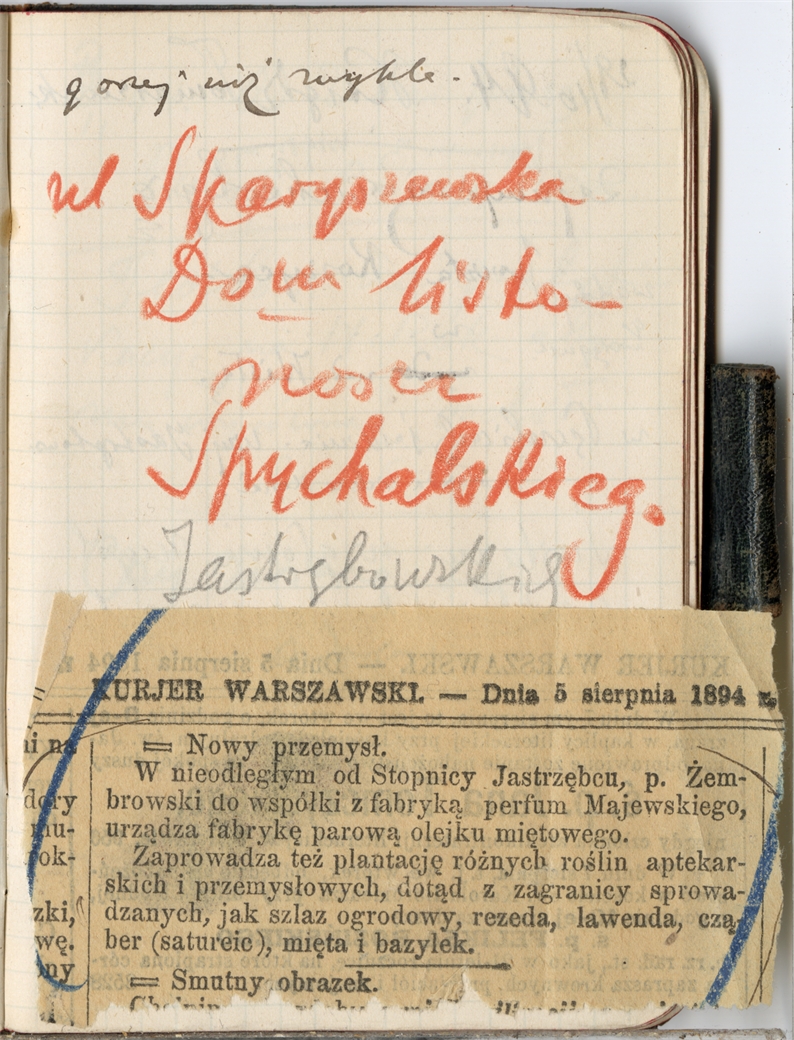 gorzej niż zwykle.
ul Skaryszewska
Dom listo-
nosza
Spychalskieg.
Jastrzębowskieg
KURJER WARSZAWSKI. — Dnia 5 sierpnia 1894 r.
ni na
= Nowy przemysł.
W nieodległym od Stopnicy Jastrzębcu, p. Żem-
dory
browski do współki z fabryką perfum Majewskiego,
mu-
urządza fabrykę parową olejku miętowego.
rok-
Zaprowadza też plantację różnych roślin aptekar-
skich i przemysłowych, dotąd z zagranicy sprowa-
zki,
dzanych, jak szlaz ogrodowy, rezeda, lawenda, czą-
wę.
ber (satureic), mięta i bazylek.
ny
= Smutny obrazek.